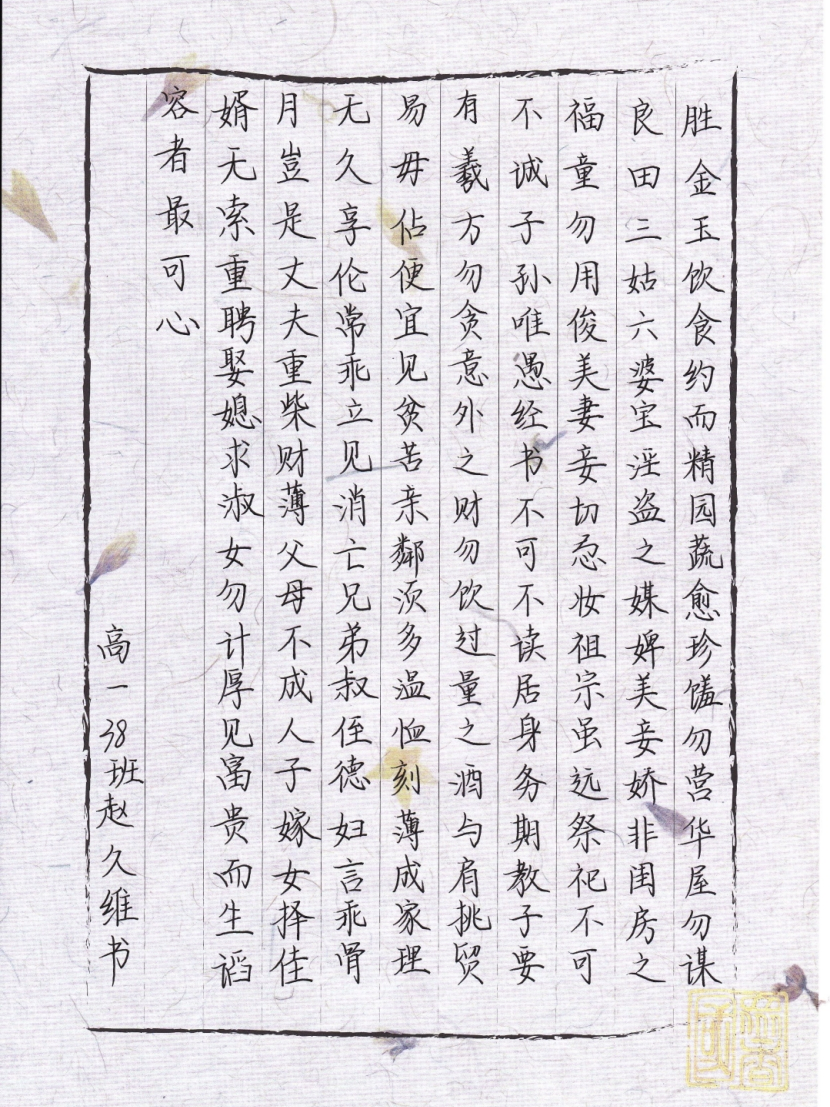 胜金玉饮食约而精园蔬愈珍馐勿营华屋勿谋
良田三姑六婆宝淫盗之媒婢美妾娇非闺房之
福童勿用俊美妻妾切忌妆祖宗虽远祭祀不可
不诚子孙唯愚经书不可不读居身务期教子要
有羲方勿贪意外之财勿饮过量之酒与肩挑贸
易毋佔便宜见贫苦亲鄰须多温恤刻薄成家理
无久享伦常乖立见消亡兄弟叔侄德妇言乖骨
月岂是丈夫重柴财薄父母不成人子嫁女择佳
婿无索重聘娶媳求淑女勿计厚见富贵而生谄
容者最可心
高一38班赵久维书